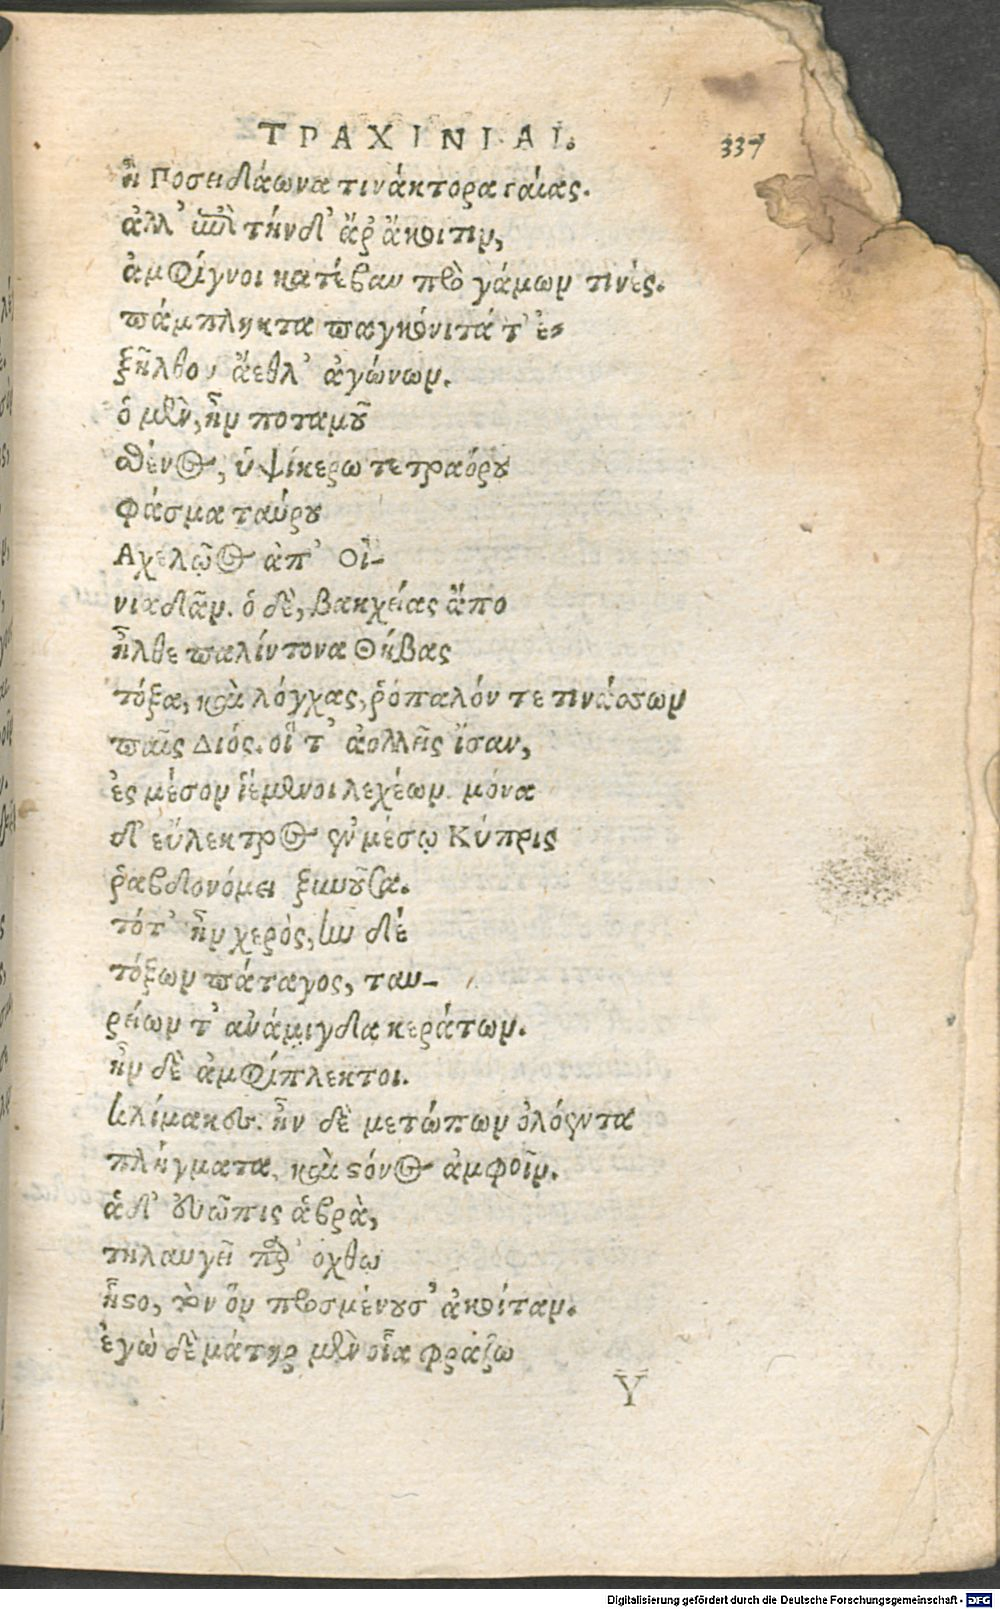 ΤΡΑΧΙΝΙΑΙ.
337
ἢ Ποσειδάωνα τινάκτορα γαίας.
ἀλλ' ἐπὶ τήνδ' ἄρ' ἄκοιτιν,
ἀμφίγυοι κατέβαν πρὸ γάμων τινές.
πάμπληκτα παγκόνιτά τ' ἐ-
ξῆλθον ἄεθλ' ἀγώνων.
ὁ μὲν, ἦν ποταμοῦ
σθένος, ὑψίκερω τετραόρου
φάσμα ταύρου
Ἀχελῷος ἀπ' Οἰ-
νιαδᾶν. ὁ δὲ, βακχείας ἄπο
ἦλθε παλίντονα Θήβας
τόξα, καὶ λόγχας, ῥόπαλόν τε τινάσσων
παῖς Διός. οἳ τ' ἀολλεῖς ἴσαν,
ἐς μέσον ἱέμενοι λεχέων. μόνα
δ' εὔλεκτρος ἐν μέσῳ Κύπρις
ῥαβδονόμει ξυνοῦσα.
τότ' ἦν χερὸς, ἦν δέ
τόξων πάταγος, ταυ-
ρείων τ' ἀνάμιγδα κεράτων.
ἦν δὲ ἀμφίπλεκτοι.
κλίμακες. ἦν δὲ μετώπων ὀλόεντα
πλήγματα, καὶ στόνος ἀμφοῖν.
ἁ δ' εὐῶπις ἁβρὰ,
τηλαυγεῖ παρ' ὄχθῳ
ἧστο, τὸν ὃν προσμένουσ' ἀκοίταν.
ἐγὼ δὲ μάτηρ μὲν οἷα φράζω
Υ
Digitalisierung gefördert durch die Deutsche Forschungsgemeinschaft - DFG